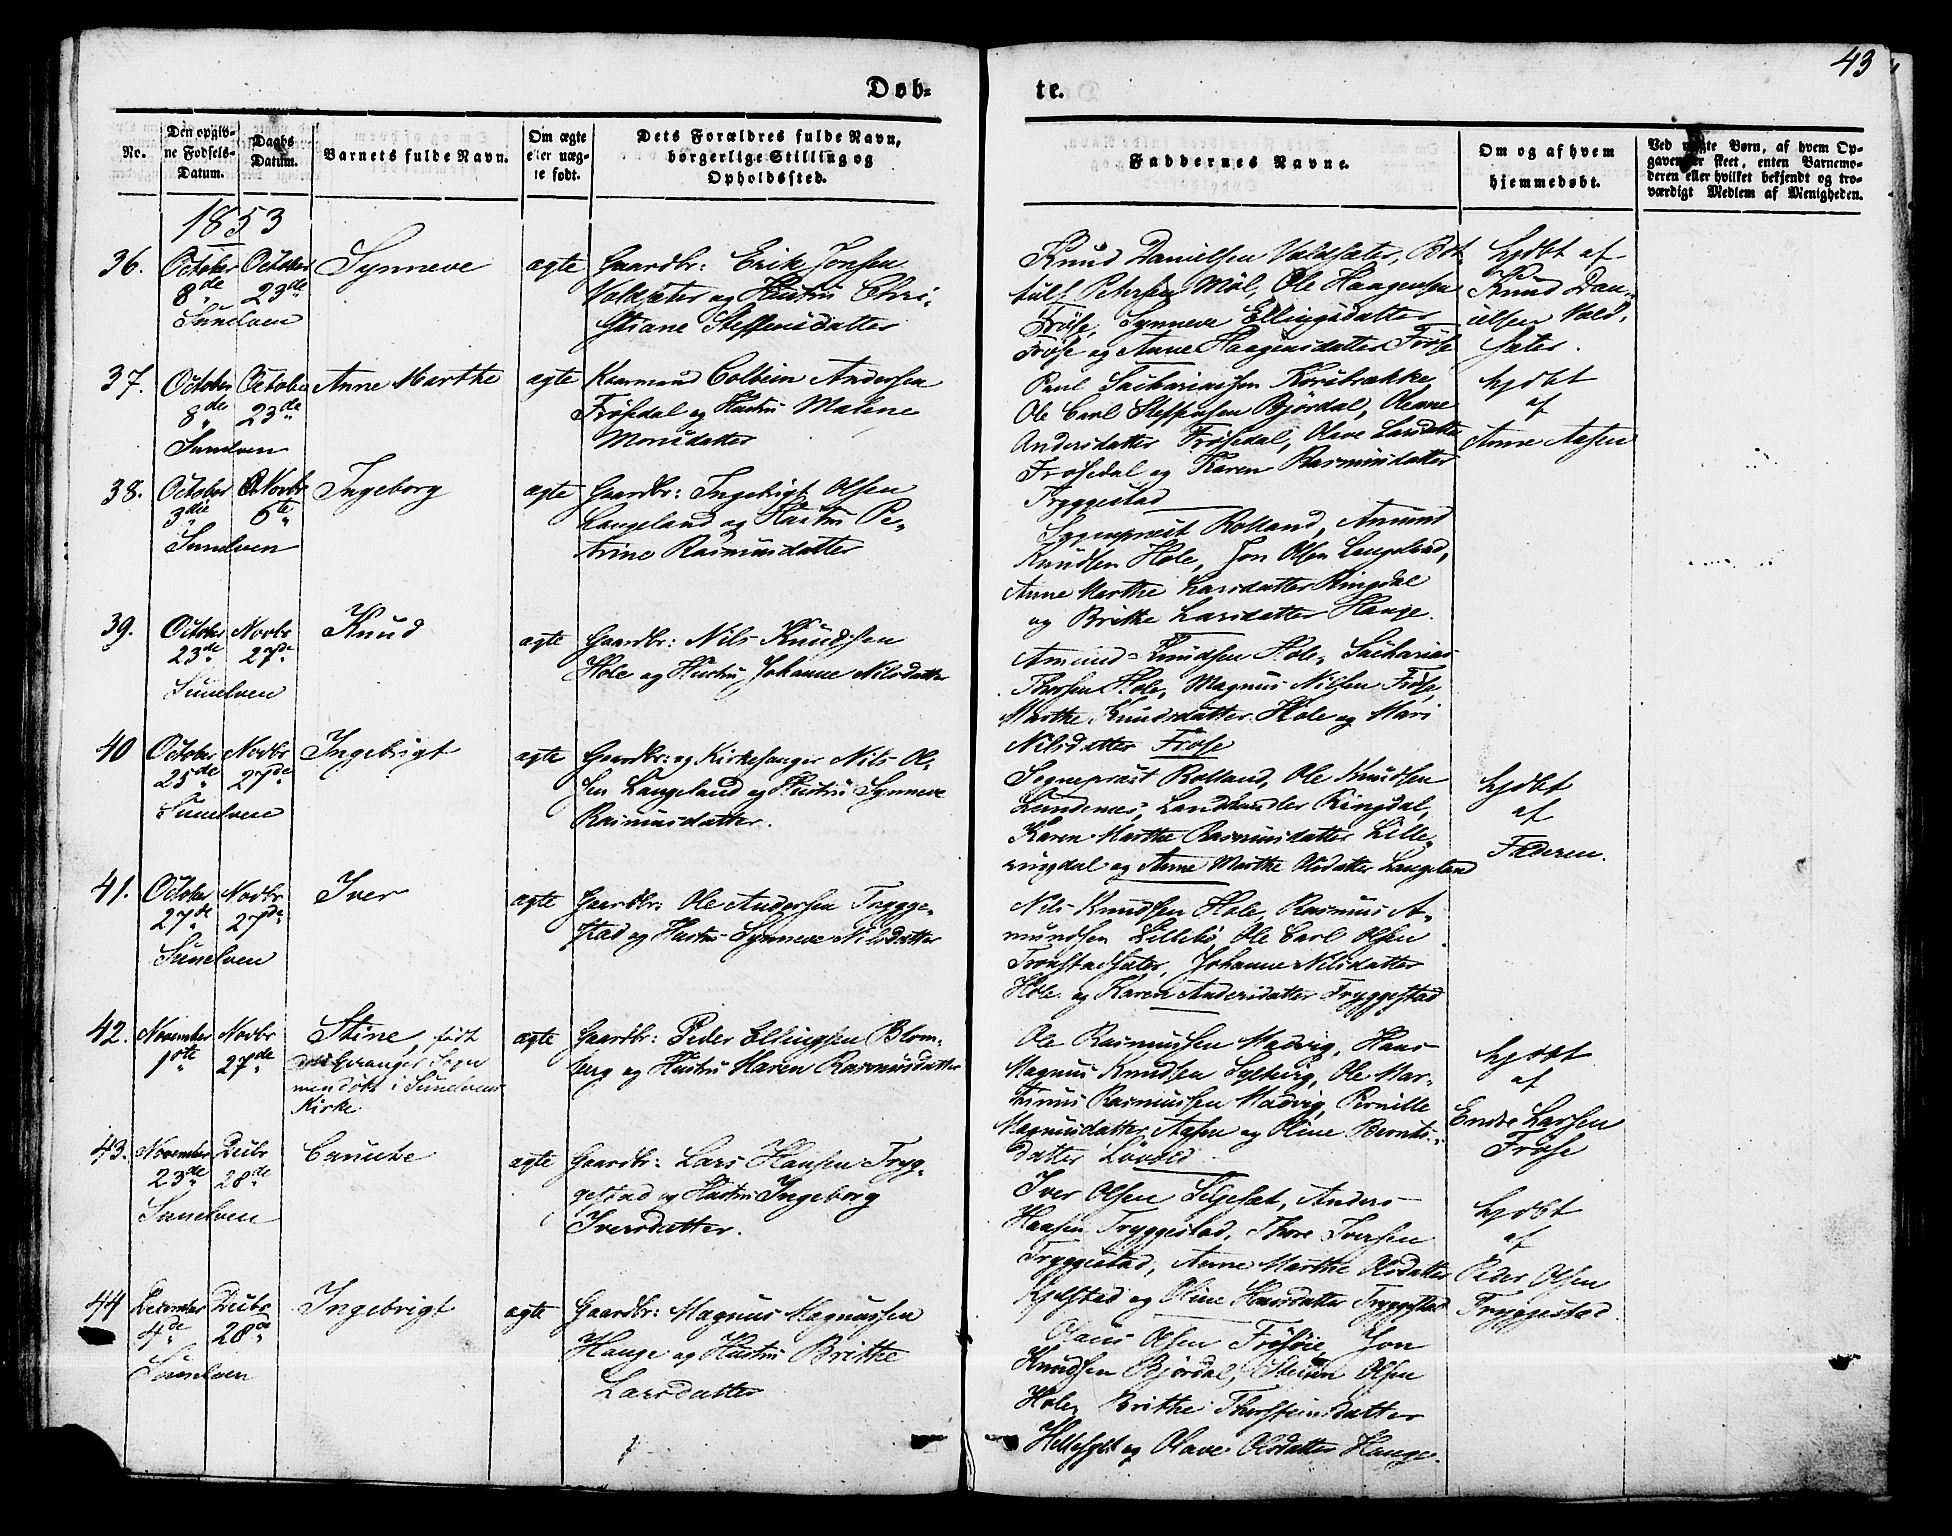 43
Døb-
te.
No.
Den opgiv-
ne Fødsels-
Datum.
Daabs
Datum.
Barnets fulde Navn.
Om ægte
eller uæg-
te født.
Dets Forældres fulde Navn,
borgerlige Stilling og
Opholdssted.
Faddernes Navne.
Om og af hvem
hjemmedøbt.
Ved uægte Børn, af hvem Op-
gaven er skeet, enten Barnemo-
deren eller hvilket bekjendt og tro-
værdigt Medlem af Menigheden.
1853
36.
October
8de
Sunelven
October
23de
Synneve
ægte
Gaardbr: Erik Jonsen
Voldsæter og Hustru Chri-
stiane Steffensdatter
Knud Danielsen Voldsæter, Bot
tulf Petersen Møl, Ole Haagensen
Frøse, Synneve Ellingsdatter
Frøse og Anne Haagensdatter Frøse
hjdbt af
Knud Dan-
ielsen Vold-
sæter.
37.
October
8de
Sunelven
October
23de
Anne Marthe
ægte
Colbein Andersen
Frøsdal og Hustru Malene
Monsdatter
Paul Sachariassen Korsbrække,
Ole Carl Steffensen Bjørdal, Oleane
Andersdatter Frøsedal, Olave Larsdatter
Frøsedal og Karen Rasmusdatter
Tryggestad
hjdbt
af
Anne Aasen
38.
October
3die
Sunelven
Novbr
6te
Ingeborg
ægte
Gaardbr: Ingebrigt Olsen
Langeland og Hustru Pe-
trine Rasmusdatter
Sogneprest Rolland, Amund
Knudsen Hole, Jon Olsen Langeland,
Anne Marthe Larsdatter Ringdal
og Brithe Larsdatter Hauge.
39.
October
23de
Sunelven
Novbr
27de
Knud
ægte
Gaardbr: Nils Knudsen
Hole og Hustru Johanne Nilsdatter
Amund Knudsen Hole, Sacharias
Thorsen Hole, Magnus Nilsen Frøse,
Marthe Knudsdatter Hole og Mari
Nilsdatter Frøse
40
October
25de
Sunelven
Novbr
27de
Ingebrigt
ægte
Gaardbr: og Kirkesanger Nils Ol-
sen Langeland og Hustru Synneve
Rasmusdatter.
Sogneprest Rolland, Ole Knudsen
Lundenes, Landhandler Ringdal,
Karen Marthe Rasmusdatter Lille-
ringdal og Anne Marthe Olsdatter Langeland
hjdbt
af
Faderen.
41.
October
27de
Sunelven
Novbr
27de
Iver
ægte
Gaardbr: Ole Andersen Trygge-
stad og Hustru Synneve Nilsdatter
Nils Knudsen Hole, Rasmus A-
mundsen Lillebø, Ole Carl Olsen
Tronstadsæter, Johanne Nilsdatter
Hole og Karen Andersdatter Tryggestad
42.
November
1ste
Novbr
27de
Stine, født
i Geiranger Sogn
men døbt i Sunelvens
Kirke
ægte
Gaardbr: Peder Ellingsen Blom-
berg og Hustru Maren Rasmusdatter
Ole Rasmussen Madvig, Hans
Magnus Knudsen Lyltvig, Ole Mar-
tinus Rasmussen Madvig, Pernille
Magnusdatter Aasen og Oline Bernts-
datter Løvold
hjdbt
af
Endre Larsen
Frøse
43.
November
23de
Sunelven
Decbr
28de
Canute
ægte
Gaardbr: Lars Hansen Tryg-
gestad og Hustru Ingeborg
Iversdatter.
Iver Olsen Ljøesæt, Anders
Hansen Tryggestad, Thore Iversen
Tryggestad, Anne Marthe Olsdatter
Kjelstad og Oline Hansdatter Tryggestad
hjdbt
af
Peder Olsen
Tryggestad.
44
December
4de
Sunelven
Decbr
28de
Ingebrigt
ægte
Gaardbr: Magnus Magnussen
Hauge og Hustru Brithe
Larsdatter
Olaus Olsen Frøsøie, Jon
Knudsen Bjørdal, Steinn Olsen
Hole, Brithe Thorsteinsdatter
Hellesylt og Olave Olsdatter Hauge.